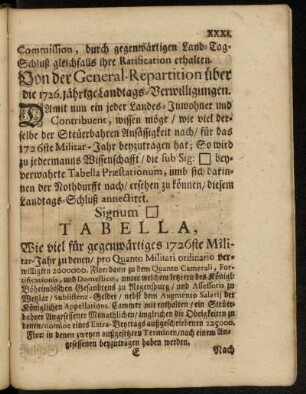 XXXI.
Commission, durch gegenwärtigen Land-Tag-
Schluß gleichfalls ihre Ratification erhalten.
Von der General-Repartition über
die 1726. jährige Landtags-Verwilligungen.
Damit nun ein jeder Landes-Inwohner und
Contribuent, wissen möge / wie viel der-
selbe der Steüerbahren Ansässigkeit nach / für das
1726ste Militar-Jahr beyzutragen hat; So wird
zu jedermanns Wissenschafft / die sub Sig: □ bey-
verwahrte Tabella Præstationum, umb sich darin-
nen der Nothdurfft nach / ersehen zu können / diesem
Landtags-Schluß annectiret.
Signum □
TABELLA,
Wie viel für gegenwärtiges 1726ste Mili-
tar-Jahr zu denen / pro Quanto Militari ordinario ver-
willigten 2000000. Flor: dann zu dem Quanto Camerali, For-
tificationis, und Domestico, unter welchen letztern des Königl:
Böheimbischen Gesandtens zu Regenspurg / und Assessoris zu
Wetzlar / Subsistenz-Gelder / nebst dem Augmento Salarij der
Königlichen Appellations. Cammer mit enthalten / ein Steür-
bahrer Angesessener Monathlichen / ingleichen die Obrigkeiten zu
denen / nomine eines Extra-Beytrags außgeschriebenen 225000.
Flor: in denen außgesetzten Terminen / nach einem An-
gesessenen beyzutragen haben werden.
E Nach